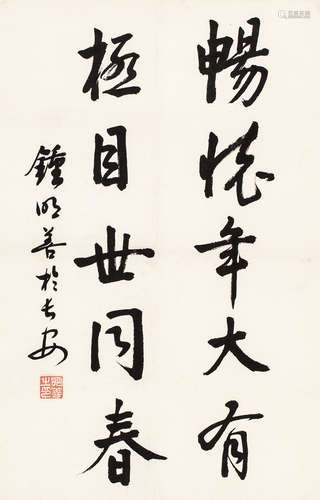 暢懷年大有
極目世同春
鍾明善於長安